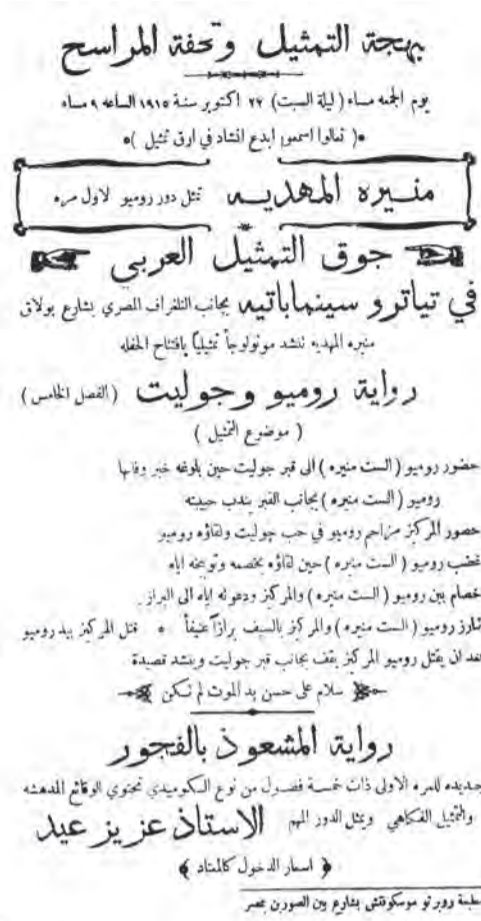 بهجة التمثيل وتحفة المراسح
يوم الجمعه مساء (ليلة السبت) ٢٢ اكتوبر سنة ١٩١٥ الساعه ٩ مساء
(تعالوا اسمعوا ابدع انشاد في ارق تمثيل)
منيره المهديه تمثل دور روميو لاول مره
جوق التمثيل العربي
في تياترو سينماباتيه بجانب التلغراف المصري بشارع بولاق
منيره المهديه تنشد مونولوجاً تمثيلياً بافتتاح الحفله
رواية روميو وجوليت (الفصل الخامس)
(موضوع التمثيل)
حضور روميو (الست منيره) الى قبر جوليت حين بلوغه خبر وفاتها
روميو (الست منيره) بجانب القبر يندب حبيبته
حضور المركيز مزاحم روميو في حب جوليت ولقاؤه روميو
غضب روميو (الست منيره) حين لقاؤه بخصمه وتوبيخه اياه
خصام بين روميو (الست منيره) والمركيز ودعوته اياه الى البراز
تبارز روميو (الست منيره) والمركيز بالسيف برازاً عنيفاً * قتل المركيز بيد روميو
بعد ان يقتل روميو المركيز يقف بجانب قبر جوليت وينشد قصيدة
سلام على حسن يد الموت لم تكن
رواية المشعوذ بالفجور
جديده للمره الاولى ذات خمسة فصول من نوع الكوميدي تحتوي الوقائع المدهشه
والتمثيل الفكاهي ويمثل الدور المهم الاستاذ عزيز عيد
(اسعار الدخول كالمعتاد)
مطبعة روبرتو موسكوفتش بشارع بين الصورين بمصر